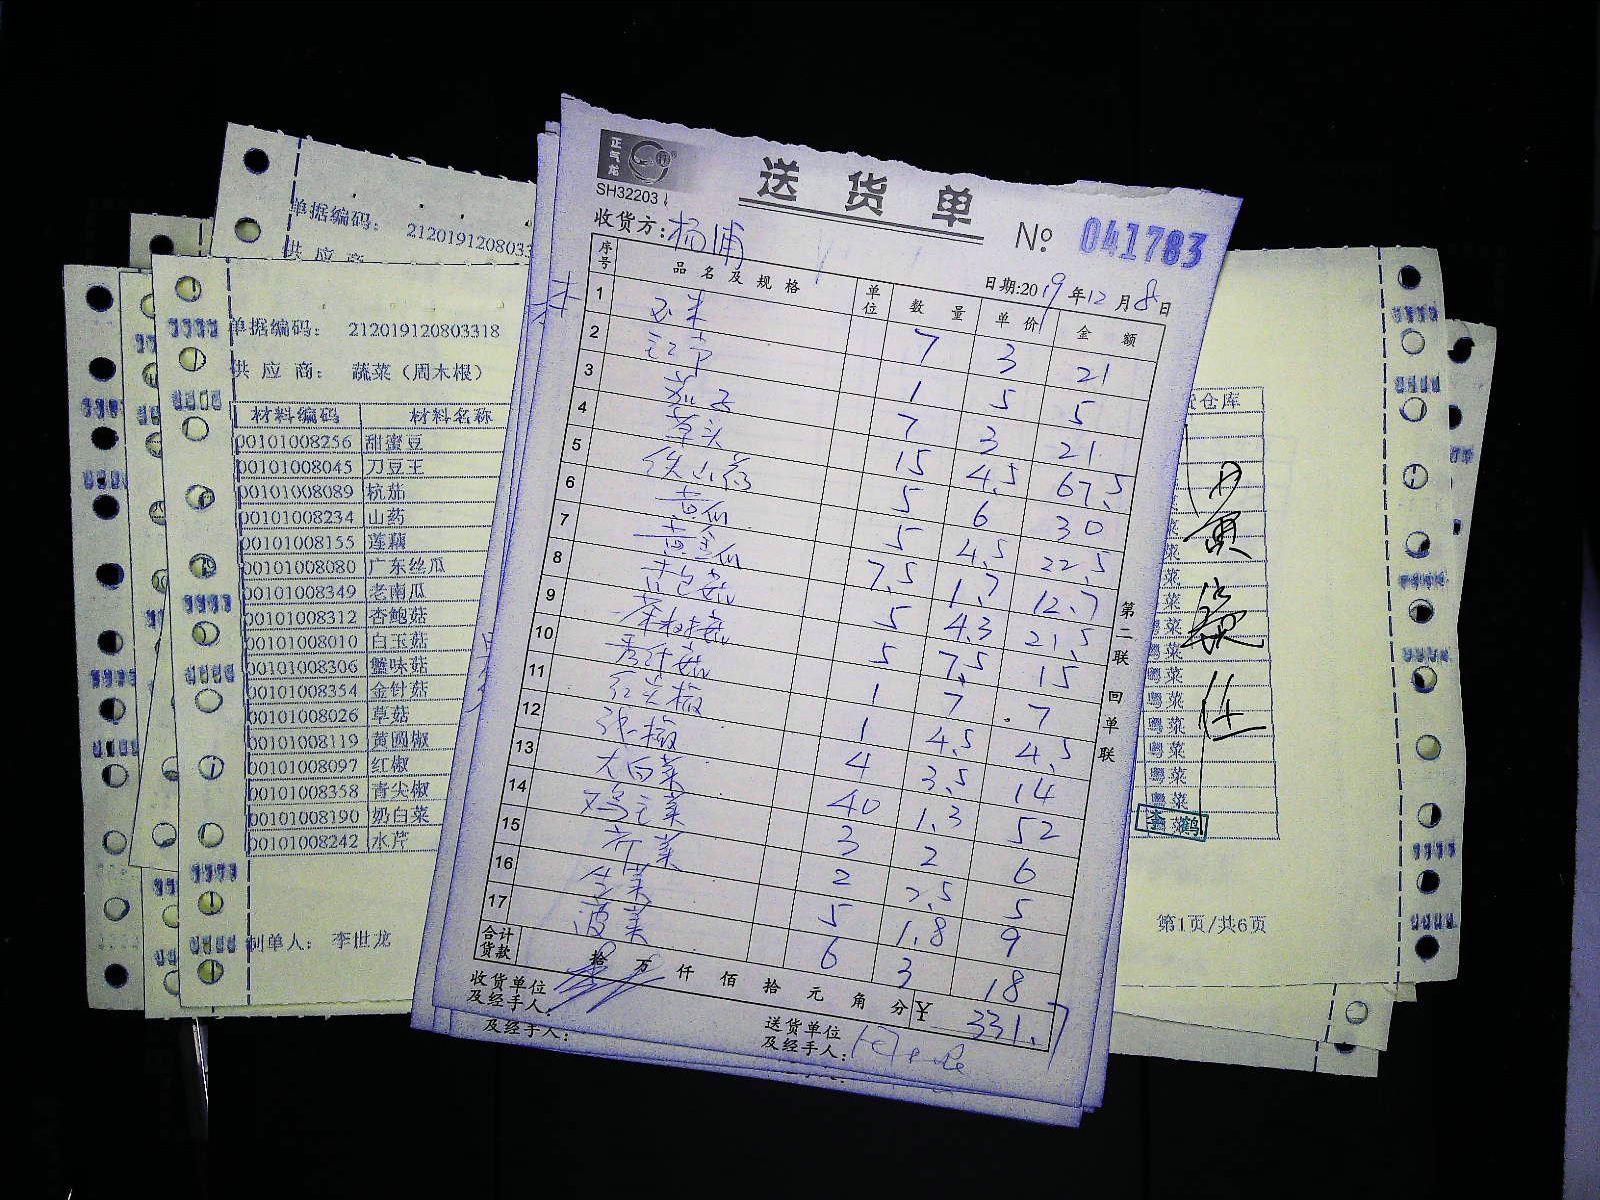 正气龙
SH32203
送货单
收货方：杨浦
№ 041783
日期:2019年12月8日
序号 品名及规格 单位 数量 单价 金额
1 玉米 7 3 21
2 1 5 5
3 茄子 7 3 21
4 草头 15 4.5 67.5
5 铁山药 5 6 30
6 黄瓜 5 4.5 22.5
7 黄金瓜 7.5 1.7 12.7
8 5 4.3 21.5
9 茶树菇 5 7.5 15
10 秀珍菇 1 7 7
11 红尖椒 1 4.5 4.5
12 4 3.5 14
13 大白菜 40 1.3 52
14 鸡毛菜 3 2 6
15 芹菜 2 2.5 5
16 生菜 5 1.8 9
17 菠菜 6 3 18
合计货款 拾万仟佰拾元角分 ¥ 331.7
收货单位及经手人：
送货单位及经手人：
及经手人：
第二联 回单联
单据编码： 2120191208033
供应商
单据编码： 212019120803318
供应商： 蔬菜（周木根）
材料编码 材料名称
00101008256 甜蜜豆
00101008045 刀豆王
00101008089 杭茄
00101008234 山药
00101008155 莲藕
00101008080 广东丝瓜
00101008349 老南瓜
00101008312 杏鲍菇
00101008010 白玉菇
00101008306 蟹味菇
00101008354 金针菇
00101008026 草菇
00101008119 黄圆椒
00101008097 红椒
00101008358 青尖椒
00101008190 奶白菜
00101008242 水芹
制单人： 李世龙
仓库
菜
菜
菜
菜
粤菜
粤菜
粤菜
粤菜
粤菜
粤菜
粤菜
第1页/共6页